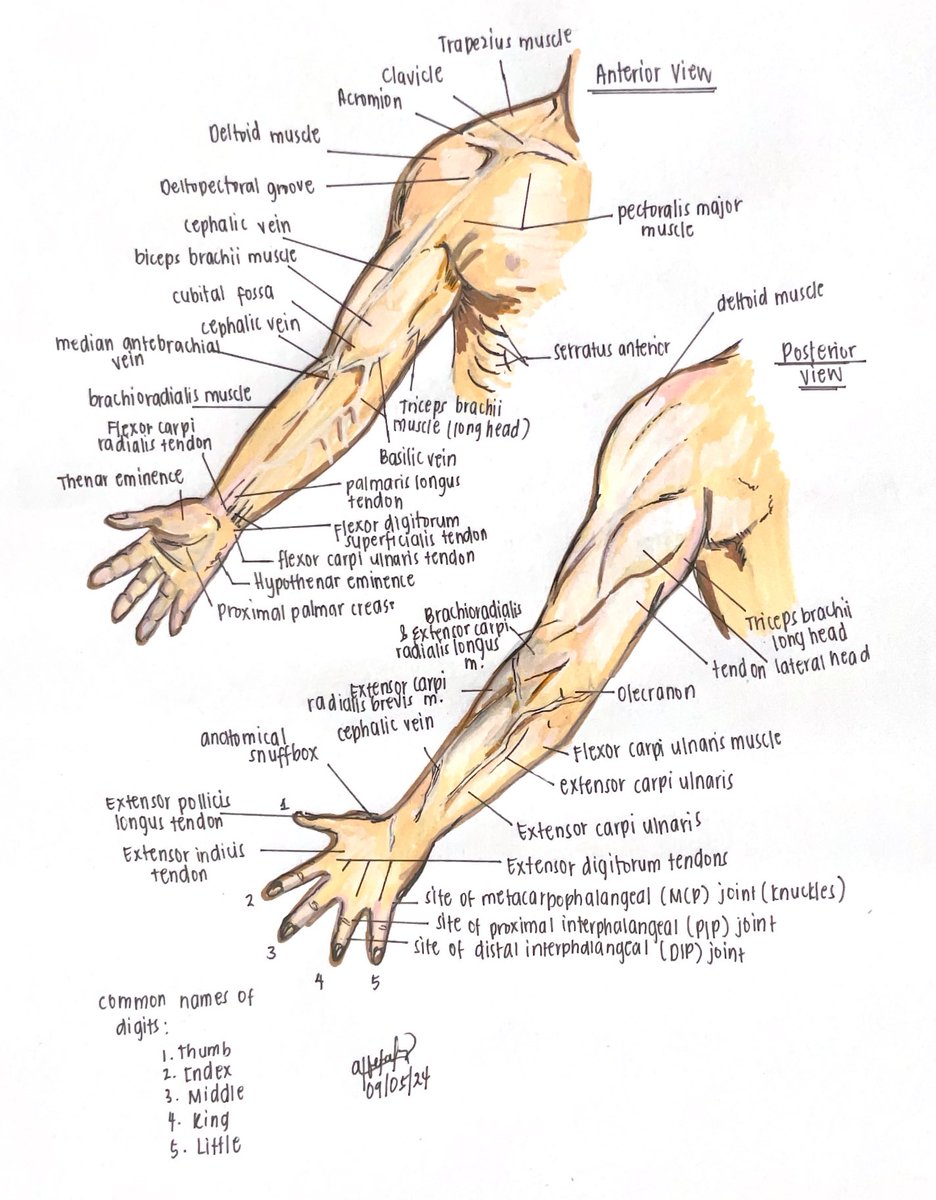 Trapezius muscle
Clavicle
Acromion
Anterior View
Deltoid muscle
Deltopectoral groove
cephalic vein
pectoralis major
muscle
biceps brachii muscle
cubital fossa
cephalic vein
median antebrachial
vein
serratus anterior
brachioradialis muscle
Triceps brachii
muscle (long head)
Flexor carpi
radialis tendon
Basilic vein
Thenar eminence
palmaris longus
tendon
Flexor digitorum
superficialis tendon
flexor carpi ulnaris tendon
Hypothenar eminence
Proximal palmar crease
deltoid muscle
Posterior
View
Brachioradialis
& Extensor carpi
radialis longus
m.
Triceps brachii
long head
lateral head
tendon
Extensor carpi
radialis brevis m.
Olecranon
cephalic vein
anatomical
snuffbox
Flexor carpi ulnaris muscle
extensor carpi ulnaris
Extensor pollicis
longus tendon
1
Extensor carpi ulnaris
Extensor indicis
tendon
Extensor digitorum tendons
2
site of metacarpophalangeal (MCP) joint (knuckles)
site of proximal interphalangeal (PIP) joint
3
site of distal interphalangeal (DIP) joint
4
5
common names of
digits:
1. Thumb
2. Index
3. Middle
4. Ring
5. Little
09/05/24